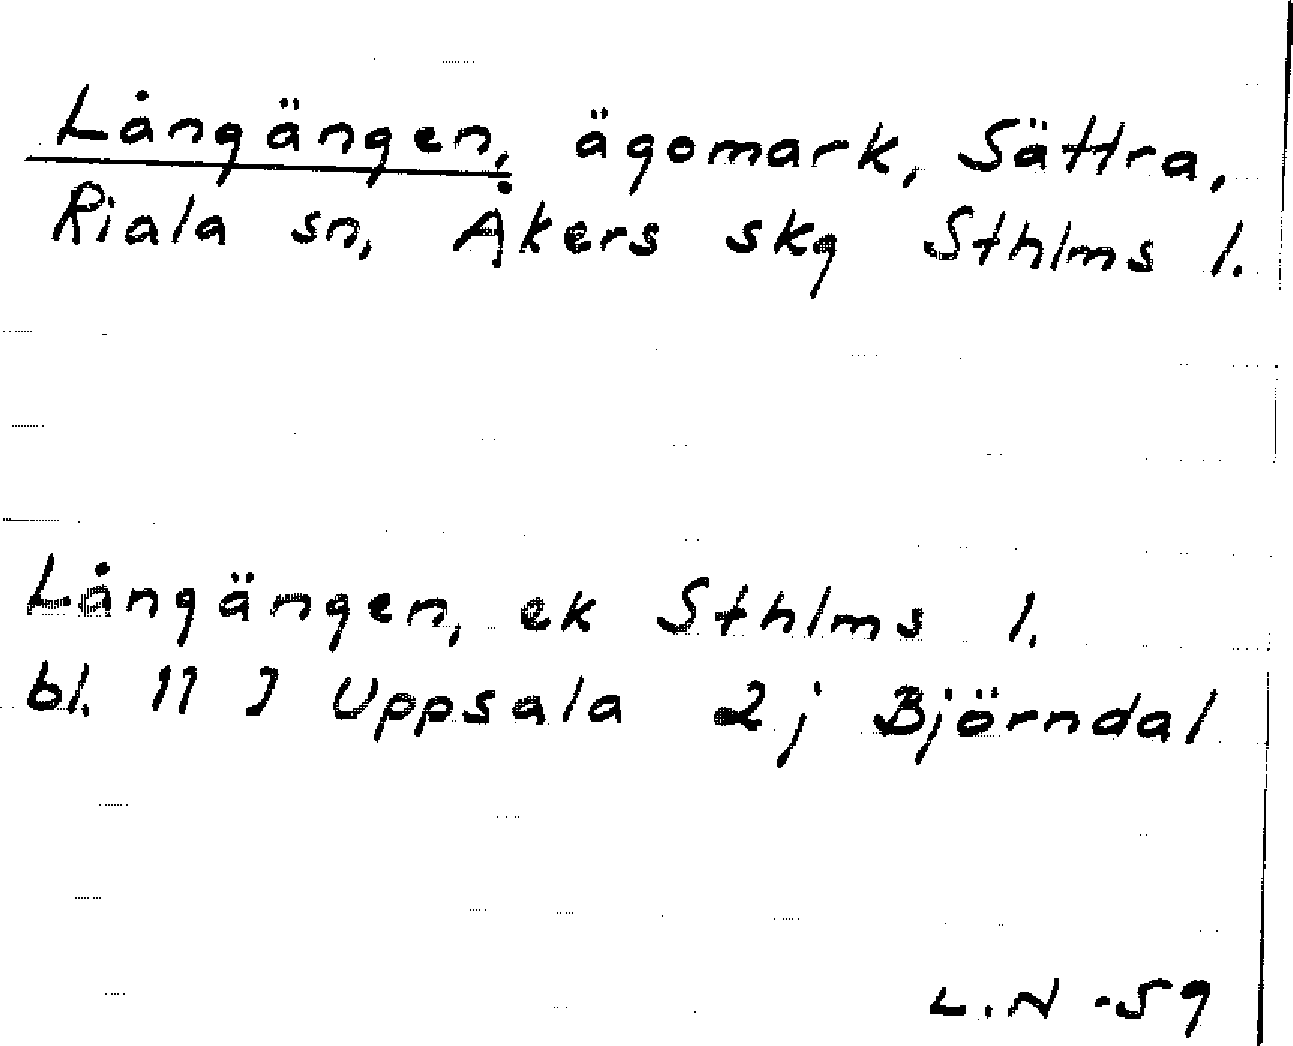 Långängen, ägomark, Sättra,
Riala sn, Åkers skg Sthlms l.
Långängen, ek Sthlms l.
bl. 11 I Uppsala 2j Björndal
L.N -59